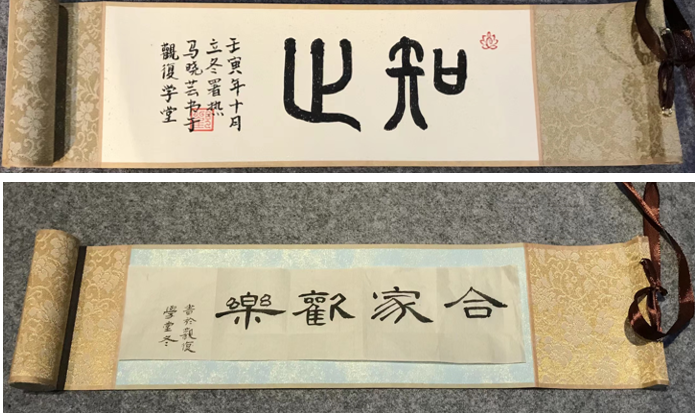 知止
壬寅年十月
立冬署热
马晓芸书于
觀復学堂
合家歡樂
書於觀復
學堂冬